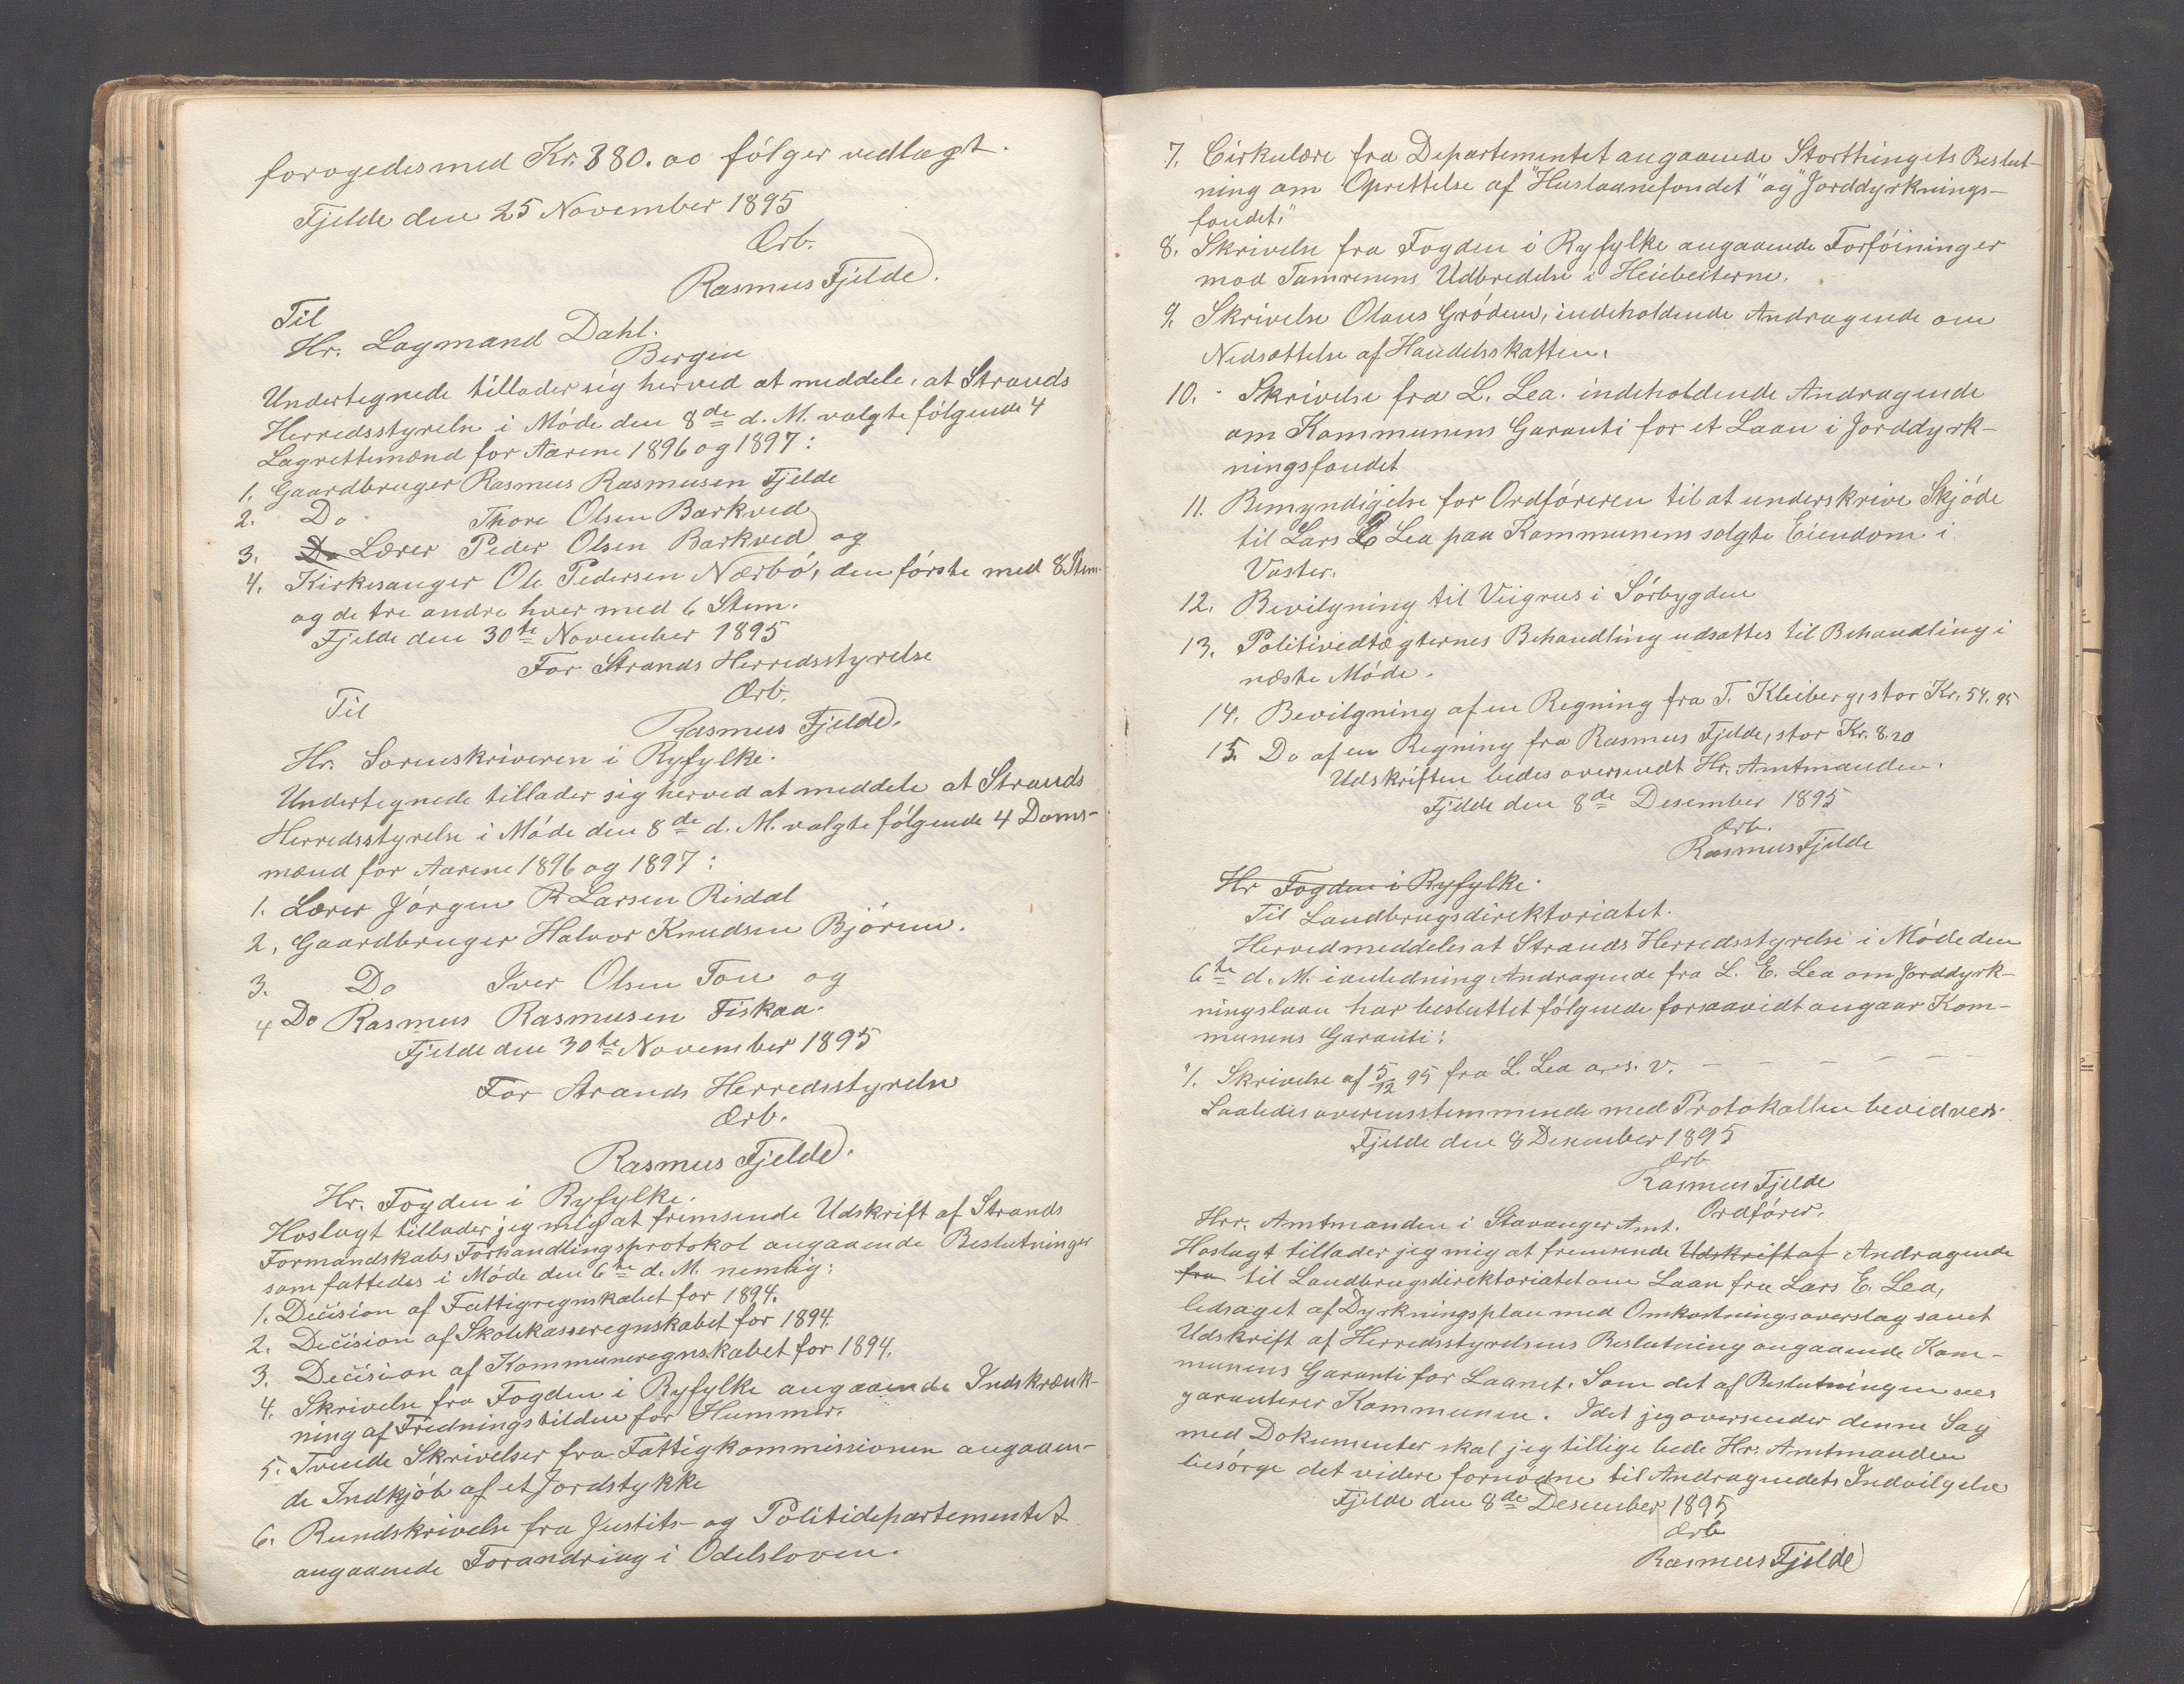 forøgedes med Kr. 380.00 følger vedlagt.
Fjelde den 25 November 1895
Ærb.
Rasmus Fjelde.
Til
Hr. Lagmand Dahl.
Bergen
Undertegnede tillader sig herved at meddele, at Strands
Herredsstyrelse i Møde den 8de d. M. valgte følgende 4
Lagrettemænd for Aarene 1896 og 1897:
1. Gaardbruger Rasmus Rasmusen Fjelde
2. Do Thore Olsen Barkved
3. Do Lærer Peder Olsen Barkved og
4. Kirkesanger Ole Pedersen Nærbø, den første med 8 Stem.
og de tre andre hver med 6 Stem.
Fjelde den 30te November 1895
For Strands Herredsstyrelse
Ærb.
Rasmus Fjelde.
Til
Hr. Sorenskriveren i Ryfylke.
Undertegnede tillader sig herved at meddele at Strands
Herredsstyrelse i Møde den 8de d. M. valgte følgende 4 Doms-
mænd for Aarene 1896 og 1897:
1. Lærer Jørgen R Larsen Risdal
2. Gaardbruger Halvor Knudsen Bjøren.
3. Do Iver Olsen Tou og
4 Do Rasmus Rasmusen Fiskaa.
Fjelde den 30te November 1895
For Strands Herredsstyrelse
Ærb.
Rasmus Fjelde.
Hr. Fogden i Ryfylke.
Hoslagt tillader jeg mig at fremsende Udskrift af Strands
Formandskabs Forhandlingsprotokol angaaende Beslutninger
som fattedes i Møde den 6te d. M. nemlig:
1. Decision af Fattigregnskabet for 1894.
2. Decision af Skolekasseregnskabet for 1894.
3. Decision af Kommuneregnskabet for 1894.
4. Skrivelse fra Fogden i Ryfylke angaaende Indskrænk-
ning af Fredningstilden for Hummer.
5. Tvende Skrivelser fra Fattigkommissionen angaaen-
de Indkjøb af et Jordstykke
6. Rundskrivelse fra Justits- og Politidepartementet
angaaende Forandring i Odelsloven.
7. Cirkulære fra Departementet angaaende Storthingets Beslut-
ning om Oprettelse af "Huslaanefondet" og "Jorddyrknings-
fondet."
8. Skrivelse fra Fogden i Ryfylke angaaende Forføininger
mod Tamrenens Udbredelse i Heiebeiterne.
9. Skrivelse Olaus Grøden, indeholdende Andragende om
Nedsættelse af Handelsskatten.
10. Skrivelse fra L. Lea. indeholdende Andragende
om Kommunens Garanti for et Laan i Jorddyrk-
ningsfondet
11. Bemyndigelse for Ordføreren til at underskrive Skjøde
til Lars E Lea paa Kommunens solgte Eiendom i
Vaster.
12. Bevilgning til Veigrus i Sørbygden
13. Politivedtægternes Behandling udsattes til Behandling i
næste Møde.
14. Bevilgning af en Regning fra T. Kleiberg, stor Kr. 54.95
15. Do af en Regning fra Rasmus Fjelde, stor Kr. 8.20
Udskriften bedes oversendt Hr. Amtmanden.
Fjelde den 8de Desember 1895
Ærb.
Rasmus Fjelde
Hr Fogden i Ryfylke.
Til Landbrugsdirektoriatet.
Herved meddeles at Strands Herredsstyrelse i Møde den
6te d. M. i anledning Andragende fra L. E. Lea om Jorddyrk-
ningslaan har besluttet følgende forsaavidt angaar Kom-
munens Garanti:
"1. Skrivelse af 5/12 95 fra L. Lea o. s. v. — — — — — —
Saaledes overensstemmende med Protokollen bevidnes.
Fjelde den 8 Desember 1895
Ærb
Rasmus Fjelde
Ordfører.
Hrr. Amtmanden i Stavanger Amt.
Hoslagt tillader jeg mig at fremsende Udskrift af Andragende
fra til Landbrugsdirektoriatet om Laan fra Lars E. Lea,
ledsaget af Dyrkningsplan med Omkostningsoverslag samt
Udskrift af Herredsstyrelsens Beslutning angaaende Kom-
munens Garanti for Laanet. Som det af Beslutningen sees
garanterer Kommunen. Idet jeg oversender denne Sag
med Dokumenter skal jeg tillige bede Hr. Amtmanden
besørge det videre fornødne til Andragendets Indvilgelse
Fjelde den 8de Desember 1895
Ærb
Rasmus Fjelde